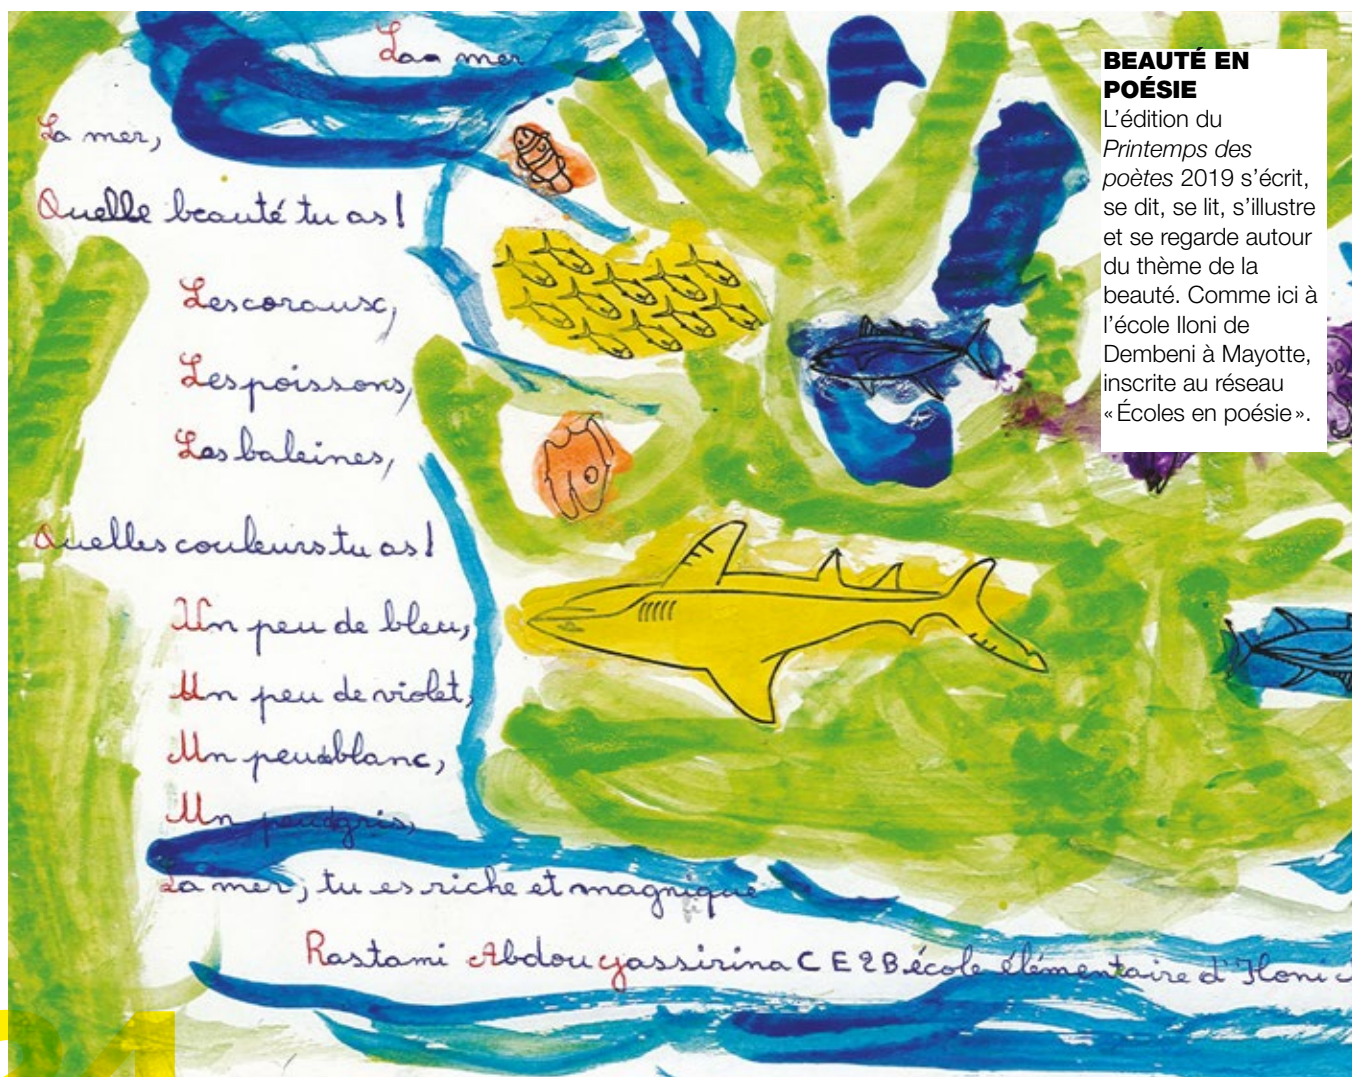 La mer
La mer,
Quelle beauté tu as!
Les coraux,
Les poissons,
Les baleines,
Quelles couleurs tu as!
Un peu de bleu,
Un peu de violet,
Un peu de blanc,
Un peu de gris,
La mer, tu es riche et magnifique
Rastami Abdou yassirina CE2B école élémentaire d'Iloni
BEAUTÉ EN
POÉSIE
L'édition du
Printemps des
poètes 2019 s'écrit,
se dit, se lit, s'illustre
et se regarde autour
du thème de la
beauté. Comme ici à
l'école Iloni de
Dembeni à Mayotte,
inscrite au réseau
«Écoles en poésie».